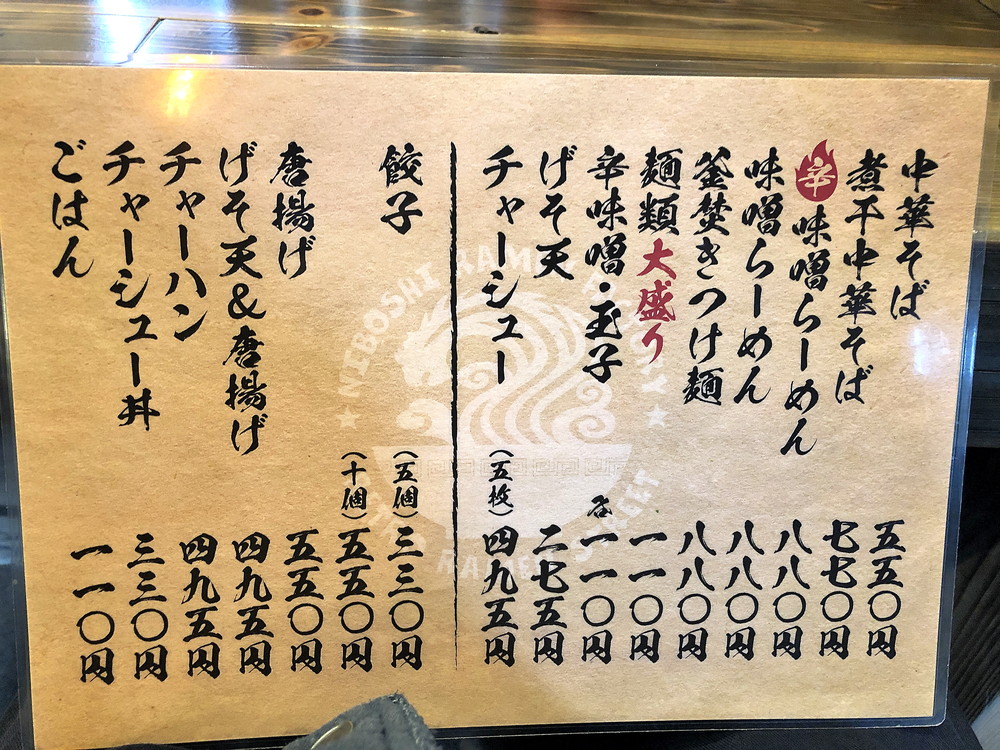 中華そば 五五〇円
煮干中華そば 七七〇円
辛 味噌らーめん 八八〇円
味噌らーめん 八八〇円
釜焚きつけ麺 八八〇円
麺類大盛り 一一〇円
辛味噌・玉子 各一一〇円
げそ天 二七五円
チャーシュー (五枚) 四九五円
餃子 (五個) 三三〇円
(十個) 五五〇円
唐揚げ 五五〇円
げそ天&唐揚げ 四九五円
チャーハン 四九五円
チャーシュー丼 三三〇円
ごはん 一一〇円
NIBOSHI RAMEN
STREET